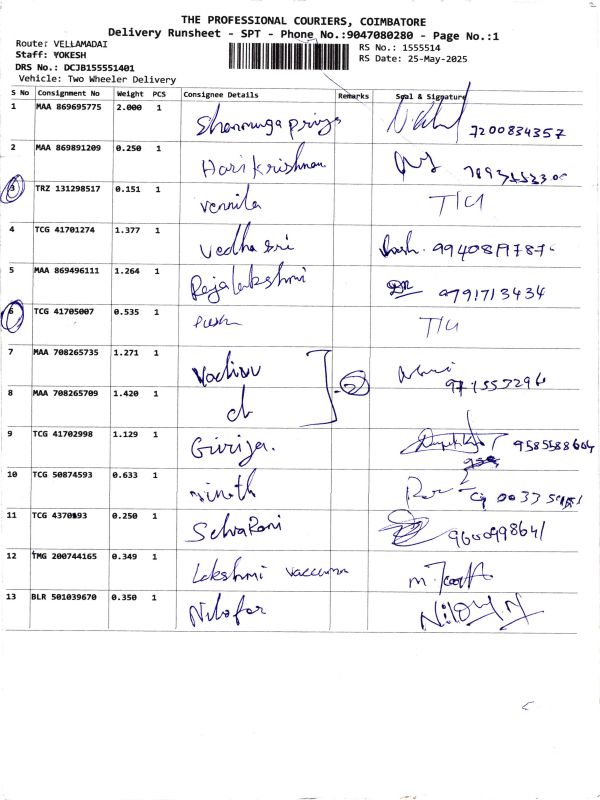 THE PROFESSIONAL COURIERS, COIMBATORE
Delivery Runsheet - SPT - Phone No.:9047080280 - Page No.:1
Route: VELLAMADAI
RS No.: 1555514
Staff: YOKESH
RS Date: 25-May-2025
DRS No.: DCJB155551401
Vehicle: Two Wheeler Delivery
S No Consignment No Weight PCS Consignee Details Remarks Seal & Signature
1 MAA 869695775 2.000 1 Shanmuga priya 7200834357
2 MAA 869891209 0.250 1 Hari krishnan
3 TRZ 131298517 0.151 1 Vennila
4 TCG 41701274 1.377 1 Vedha sri
5 MAA 869496111 1.264 1 Rajalakshmi 9791713434
6 TCG 41705007 0.535 1
7 MAA 708265735 1.271 1
8 MAA 708265709 1.420 1 ch
9 TCG 41702998 1.129 1 Girija.
10 TCG 50874593 0.633 1 vinoth
11 TCG 1 SelvaRani
12 TMG 200744165 0.349 1 Lakshmi
13 BLR 501039670 0.350 1 Nilofar